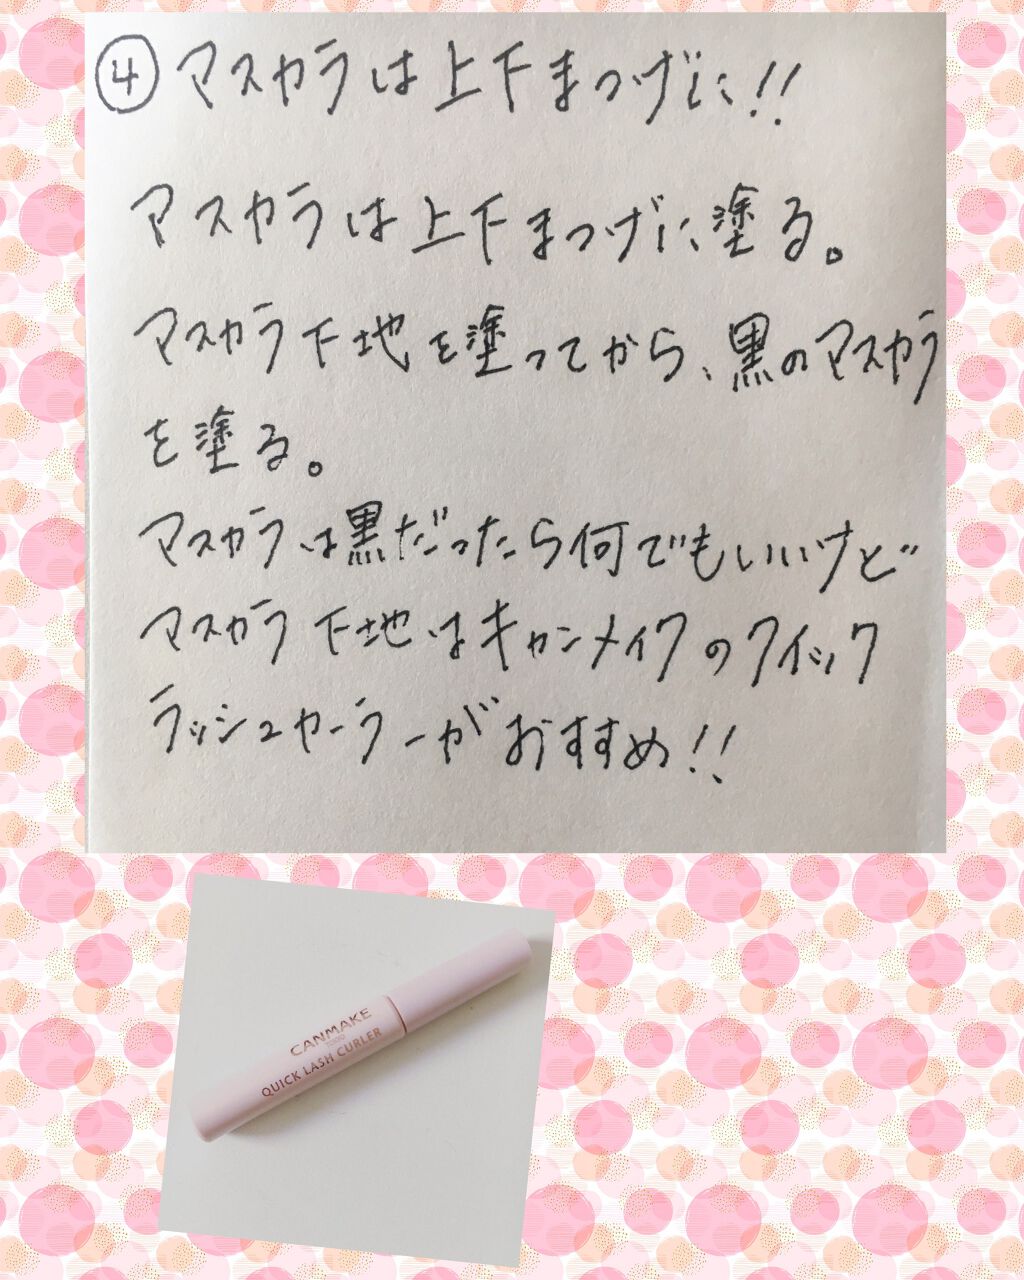 ④マスカラは上下まつげに!!
マスカラは上下まつげに塗る。
マスカラ下地を塗ってから、黒のマスカラ
を塗る。
マスカラは黒だったら何でもいいけど
マスカラ下地はキャンメイクのクイック
ラッシュカーラーがおすすめ!!
CANMAKE
TOKYO
QUICK LASH CURLER